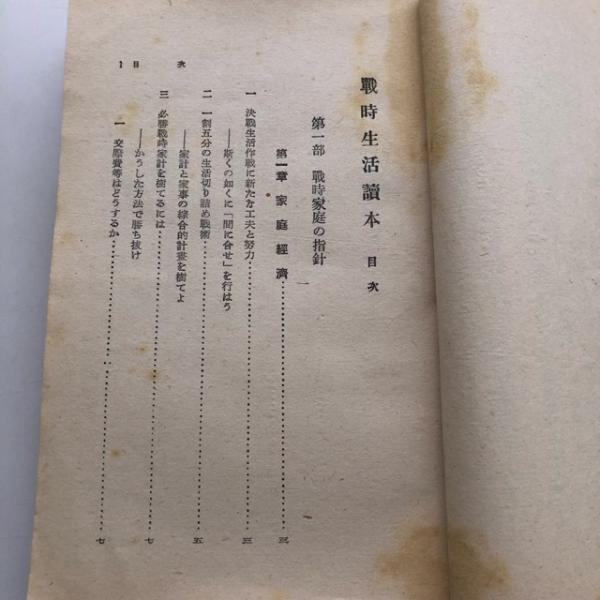 戰時生活讀本 目次
第一部 戰時家庭の指針
第一章 家庭經濟……三
一 決戰生活作戰に新たな工夫と努力……三
――斯くの如くに「間に合せ」を行はう
二 一割五分の生活切り詰め戰術……五
――家計と家事の綜合的計畫を樹てよ
三 必勝戰時家計を樹てるには……七
――かうした方法で勝ち拔け
一 交際費等はどうするか……七
目次